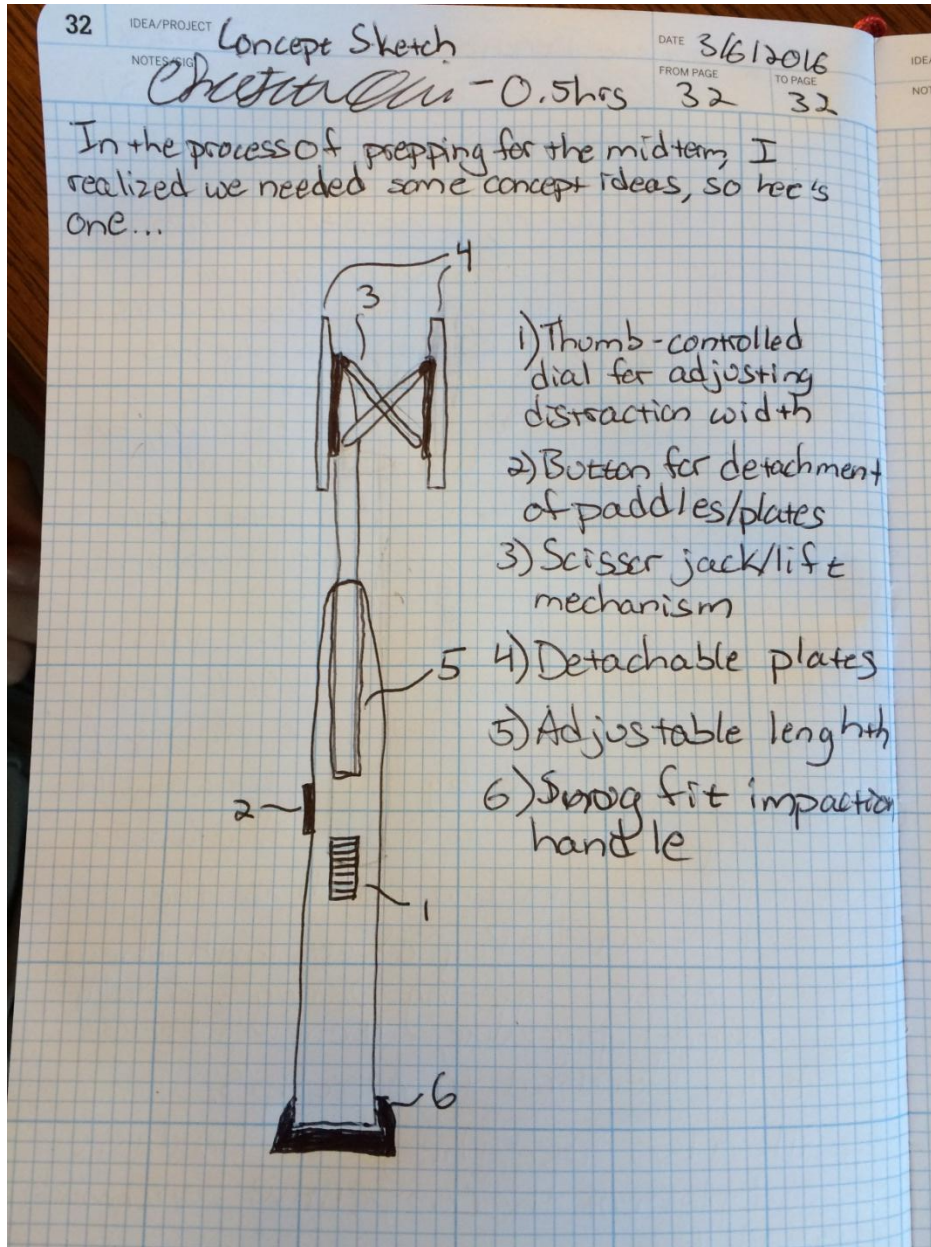 32
IDEA/PROJECT Concept Sketch
DATE 3/6/2016
NOTES/SIG - 0.5hrs
FROM PAGE 32
TO PAGE 32
IDEA
NOT
In the process of prepping for the midterm, I
realized we needed some concept ideas, so here's
one...
4
3
1) Thumb-controlled
dial for adjusting
distraction width
2) Button for detachment
of paddles/plates
3) Scisser jack/lift
mechanism
5
4) Detachable plates
5) Adjustable lenghth
2
6) Snug fit impaction
handle
1
6